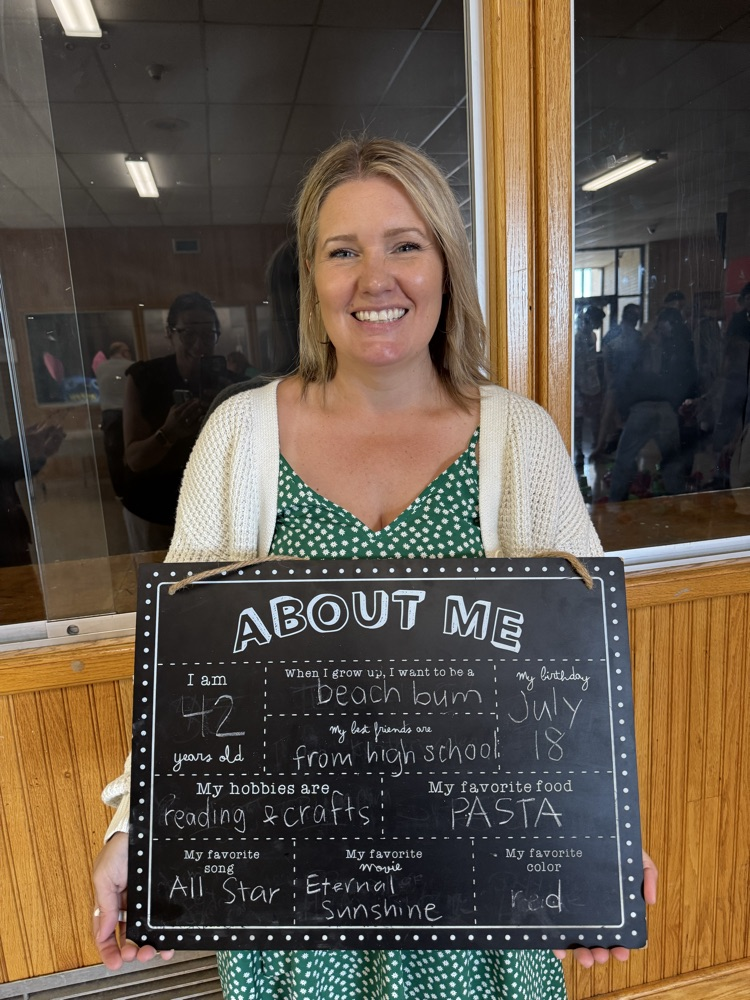 ABOUT ME
I am
42
years old
When I grow up, I want to be a
beach bum
My best friends are
from high school
My birthday
July
18
My hobbies are
reading & crafts
My favorite food
PASTA
My favorite
song
All Star
My favorite
movie
Eternal
Sunshine
My favorite
color
red